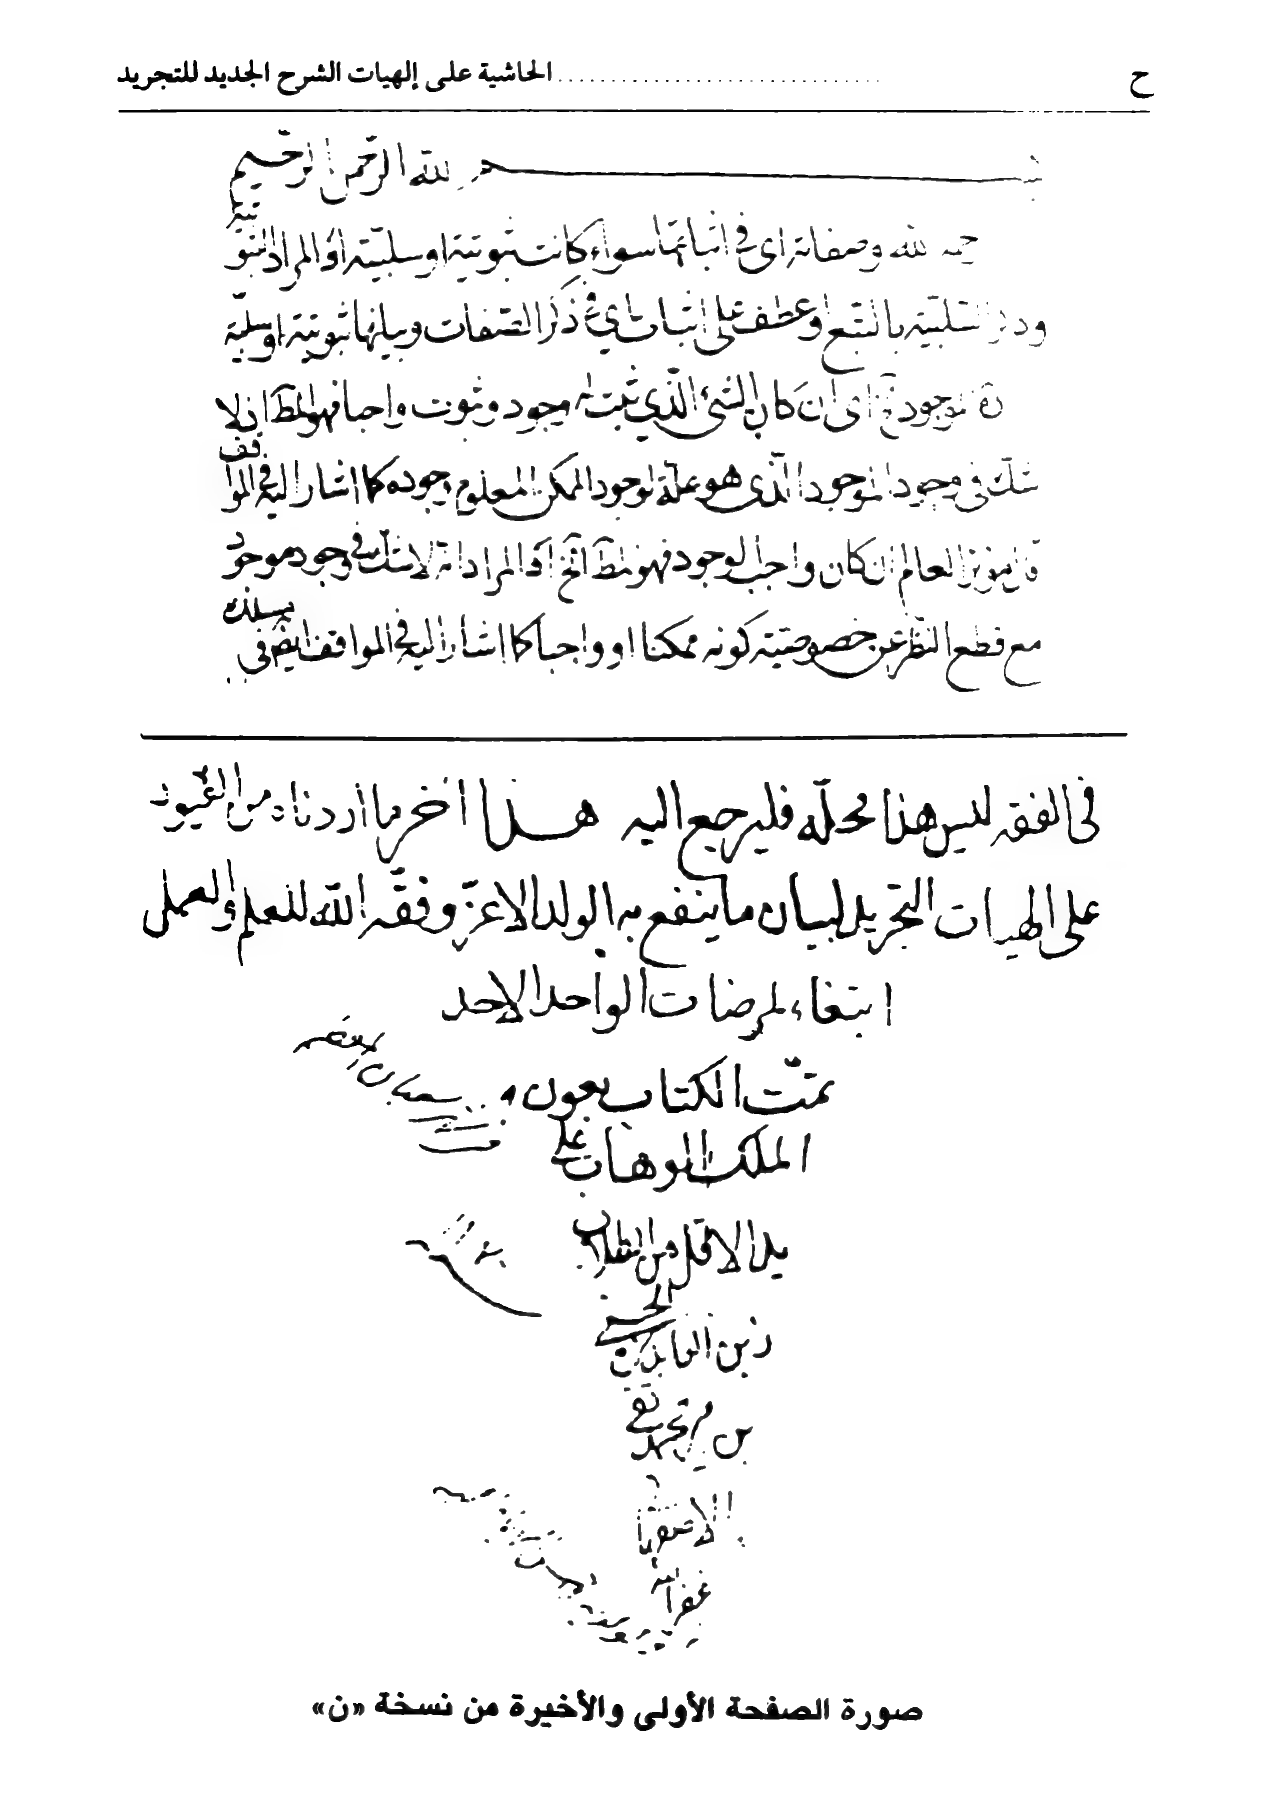 ح ............................ الحاشية على إلهيات الشرح الجديد للتجريد
بسم الله الرحمن الرحيم
الله وصفاته اى فى اثباتها سواء كانت ثبوتية او سلبيّة او المراد الثبوتية
السّلبيّة بالتّبع او عطف على اثبات اي فى ذكر الصّفات وبيانها ثبوتيّة او سلبيّة
موجود اى ان كان الشئ الّذي ثبت له وجود وثبوت واجبا فهو المط اذ لا
شك فى وجود الموجود الذى هو علّة لوجود الممكن المعلوم وجوده كما اشار اليه فى المواقف
مؤثر العالم ان كان واجب الوجود فهو المط آلخ او المراد انه لا شك فى وجود موجود
مع قطع النّظر عن خصوصيّة كونه ممكنا او واجبا كما اشار اليه فى المواقف ايضا فى مسلك
فى الفقه ليس هذا محلّه فليرجع اليه هذا آخر ما اردناه من
على الهيات التجريد لبيان ما ينفع به الولد الاعزّ وفقه الله للعلم والعمل
ابتغاء لمرضات الواحد الاحد
تمّت الكتاب بعون
الملك الوهاب على
يد الاقل من الطلاب
زين العابدين الحسيني
بن مير محمد تقى
غفر له
صورة الصفحة الأولى والأخيرة من نسخة «ن»